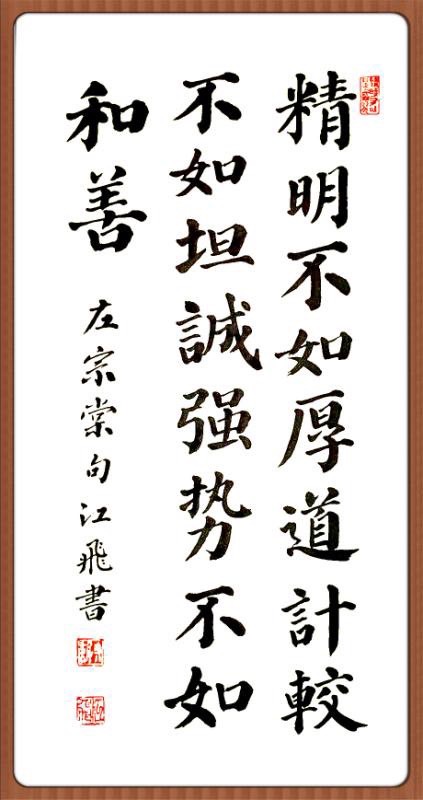 精明不如厚道計較
不如坦誠强势不如
和善
左宗棠句江飛書